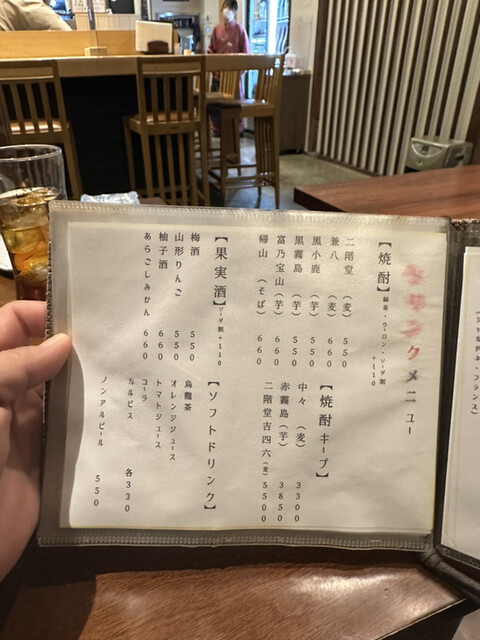 ドリンクメニュー
【焼酎】緑茶・ウーロン・ソーダ割 +110
二階堂 (麦) 550
兼八 (麦) 660
黒小鹿 (芋) 550
黒霧島 (芋) 550
富乃宝山(芋) 660
帰山 (そば) 660
【焼酎キープ】
中々 (麦) 3300
赤霧島(芋) 3850
二階堂吉四六(麦) 5500
【果実酒】ソーダ割+110
梅酒 550
山形りんご 550
柚子酒 660
あらごしみかん 660
【ソフトドリンク】
烏龍茶
オレンジジュース
トマトジュース
コーラ
カルピス 各330
ノンアルビール 550
(シャルドネ・フランス)